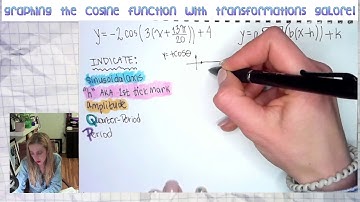 Graphing the cosine function with transformations galore!
y=-2cos(3(x+13π/20))+4
y=a (b(x-h))+k
INDICATE:
y=+cosθ
Sinusoidal axis
"h" AKA 1st tick mark
Amplitude
Quarter-Period
Period